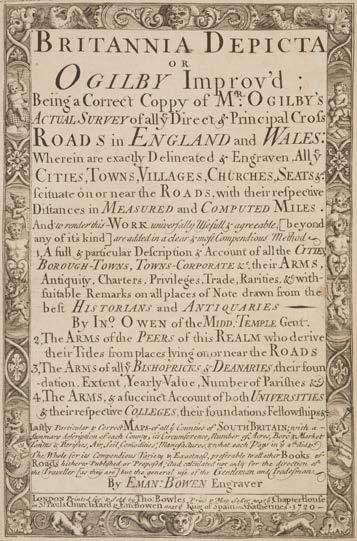 BRITANNIA DEPICTA
OR
OGILBY Improv'd;
Being a Correct Coppy of Mr. OGILBY's
ACTUAL SURVEY of all ye Direct & Principal Cross
ROADS in ENGLAND and WALES:
Wherein are exactly Delineated & Engraven, All ye
CITIES, TOWNS, VILLAGES, CHURCHES, SEATS &c.
scituate on or near the ROADS, with their respective
Distances in MEASURED and COMPUTED MILES.
And to render this WORK universally Usefull & agreeable, [beyond
any of its kind] are added in a clear & most Compendious Method
1, A full & particular Description & Account of all the CITIES,
BOROUGH-TOWNS, TOWNS-CORPORATE &c. their ARMS,
Antiquity, Charters, Privileges, Trade, Rarities, &c. with
suitable Remarks on all places of Note drawn from the
best HISTORIANS and ANTIQUARIES
By Ino. OWEN of the MIDD: TEMPLE Gent.
2, The ARMS of the PEERS of this REALM who derive
their Titles from places lying on or near the ROADS
3, The ARMS of all ye BISHOPRICKS & DEANARIES, their foun
dation, Extent, Yearly Value, Number of Parishes &c.
4, The ARMS, & a succinct Account of both UNIVERSITIES
& their respective COLLEGES, their foundations Fellowships &c
Lastly Particular & Correct MAPS of all ye Counties of SOUTH BRITAIN; with a
Summary description of each County, its Circumference, Number of Acres, Boro' & Market
Towns & Parishes, Air, Soil, Commodities, Manufactures,
The Whole for its Compendious Variety & Exactness, preferable to all other Books of
Roads hitherto Published or Proposed; And calculated not only for the direction of
the Traveller (as they are) but the general use of the Gentleman and Tradesman.
By EMAN: BOWEN Engraver
LONDON Printed for, & Sold by Tho: Bowles, Print & Map Seller next ye Chapter House
in St. Pauls Church Yard & Em: Bowen near ye King of Spain in St. Katherines. 1720